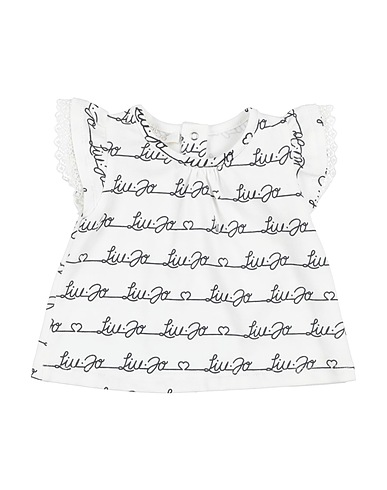 Liu·Jo
Liu·Jo
Liu·Jo Liu·Jo Liu·Jo
Liu·Jo Liu·Jo ♡ Liu·Jo
Liu·Jo Liu·Jo ♡ Liu·Jo Liu·Jo
Liu·Jo Liu·Jo ♡ Liu·Jo Liu·Jo
Liu·Jo Liu·Jo ♡ Liu·Jo Liu·Jo
Liu·Jo Liu·Jo ♡ Liu·Jo Liu·Jo
Liu·Jo Liu·Jo ♡ Liu·Jo Liu·Jo